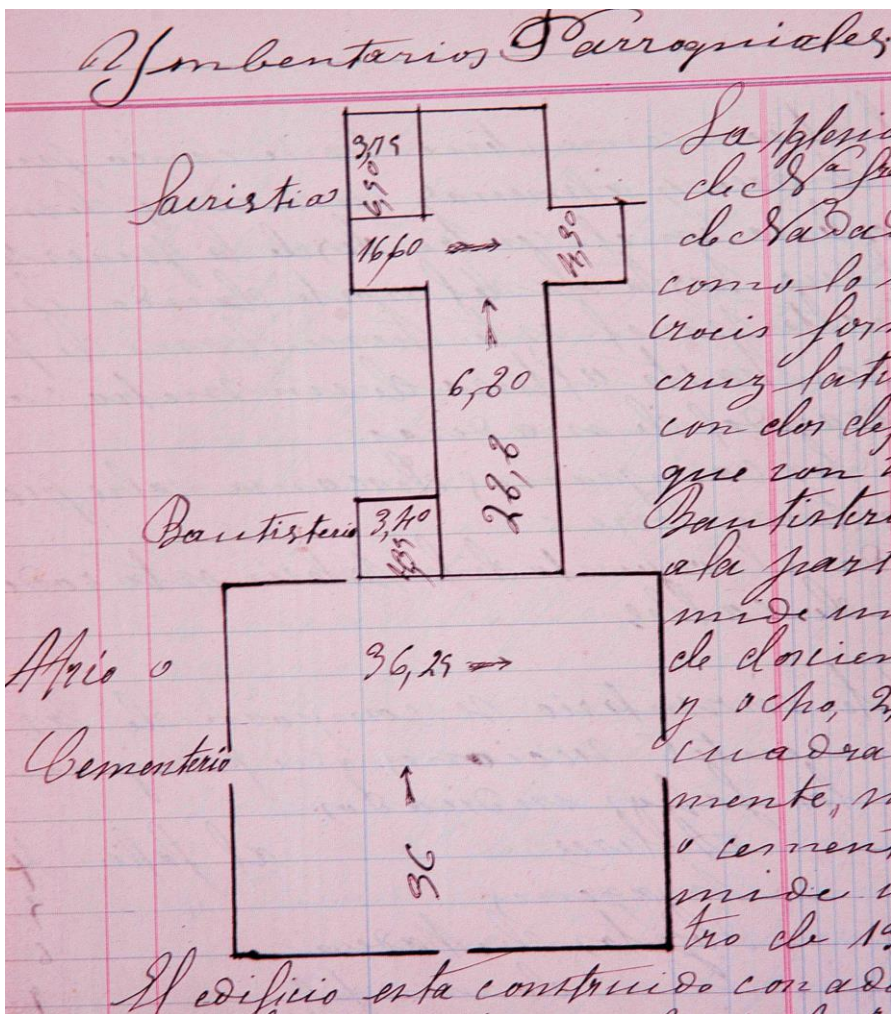 Ymbentarios Parroquiales.
Sacristia
3,75
5,90
16,60
4,90
6,20
28,8
Bautisterio
3,40
Atrio o
Cementerio
36,25
36
La Iglesi
de Na
de Nada
como lo
crocis for
cruz lati
con dos de
que son
Bautister
ala par
mide un
de doscien
y ocho, 2,
cuadra
mente,
o cement
mide
tro de 19
El edificio esta construido con ado